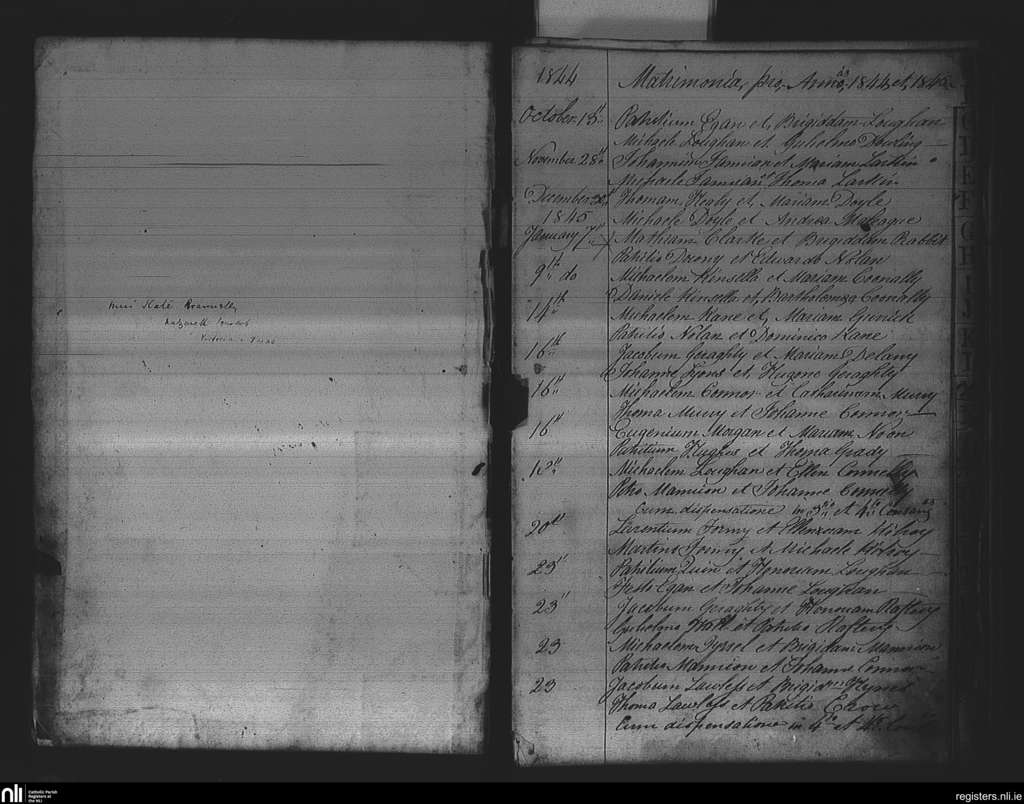 Miss Kate
1844 Matrimonia, pro Annis, 1844, et, 1845
October 15th Patritium Egan et, Brigiddam Loughan
Michaele Loughan et Gulielmo Dowling
November 28th Johannem Mannian et Mariam Larkin
Michaele Mannian, et Thoma Larkin
December Thomam Healy et, Mariam Doyle
1845 Michaele Doyle et Andrea McCague
January 7th Mathiam Clarke et Brigiddam Rabbit
Patritio et Edwardo Nolan
9th do Michaelem Kinsella et Mariam Connally
Daniele Kinsella et, Bartholomeo Connally
14th Michaelem Kane et, Mariam
Patritio Nolan et Dominico Kane
16th Jacobum Geraghty et Mariam Delany
Johanne Lyons et, Hugone Geraghty
16th Michaelem Connor et Catharinam Murry
Thoma Murry et Johanne Connor
16th Eugenium Morgan et Mariam Noon
Patritium Hughes et Thoma Grady
Michaelem Loughan et Ellen Connelly
Petro Mannion et Johanne Connelly
Cum dispensatione in 3° et 4°
20th Laurentium et Kilroy
Martino et Michaele Kilroy
23 Patritium Quin et Honoriam Loughan
Festo Egan et Johanne Loughan
23 Jacobum Geraghty et Honoriam Raftery
Gulielmo Wall et Patritio Raftery
23 Michaelem et Brigidam Mannion
Patritio Mannion et Johanne Connor
23 Jacobum Lawless et Brigidam Flynn
Thoma Lawless et Patritio
Cum dispensatione in 4° et
nli Catholic Parish
Registers at
the NLI
registers.nli.ie